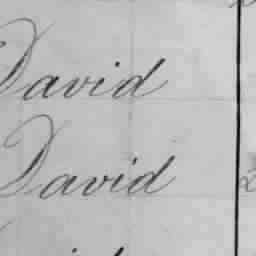 David
David